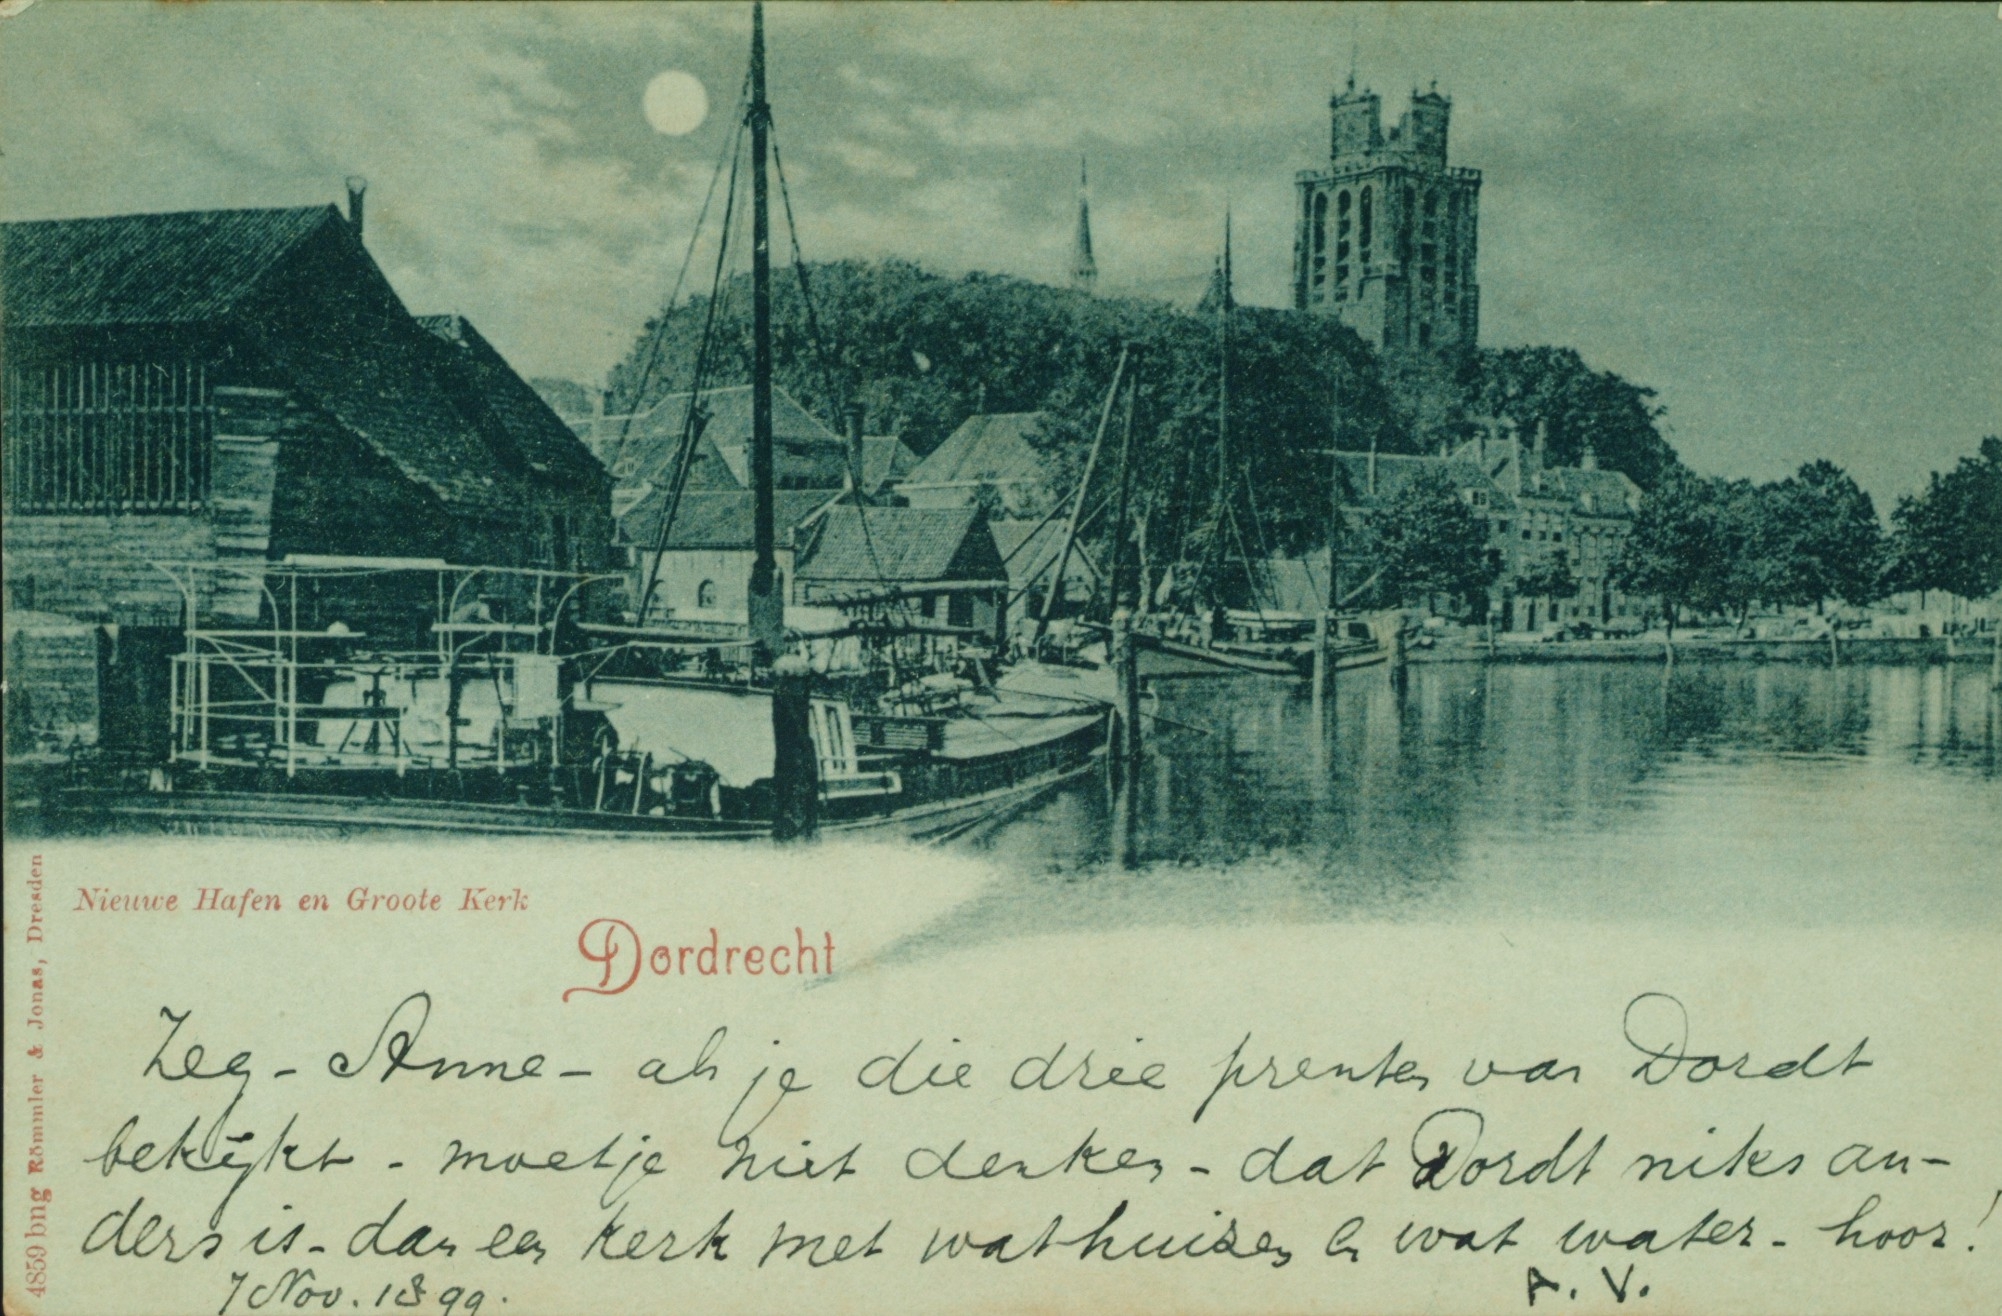 Nieuwe Hafen en Groote Kerk
Dordrecht
4859 bng Römmler & Jonas, Dresden
Zeg - Anne - als je die drie prenten van Dordt
bekijkt - moet je niet denken - dat Dordt niks an-
ders is - dan een kerk met wat huizen en wat water - hoor!
7 Nov. 1899.
A. V.